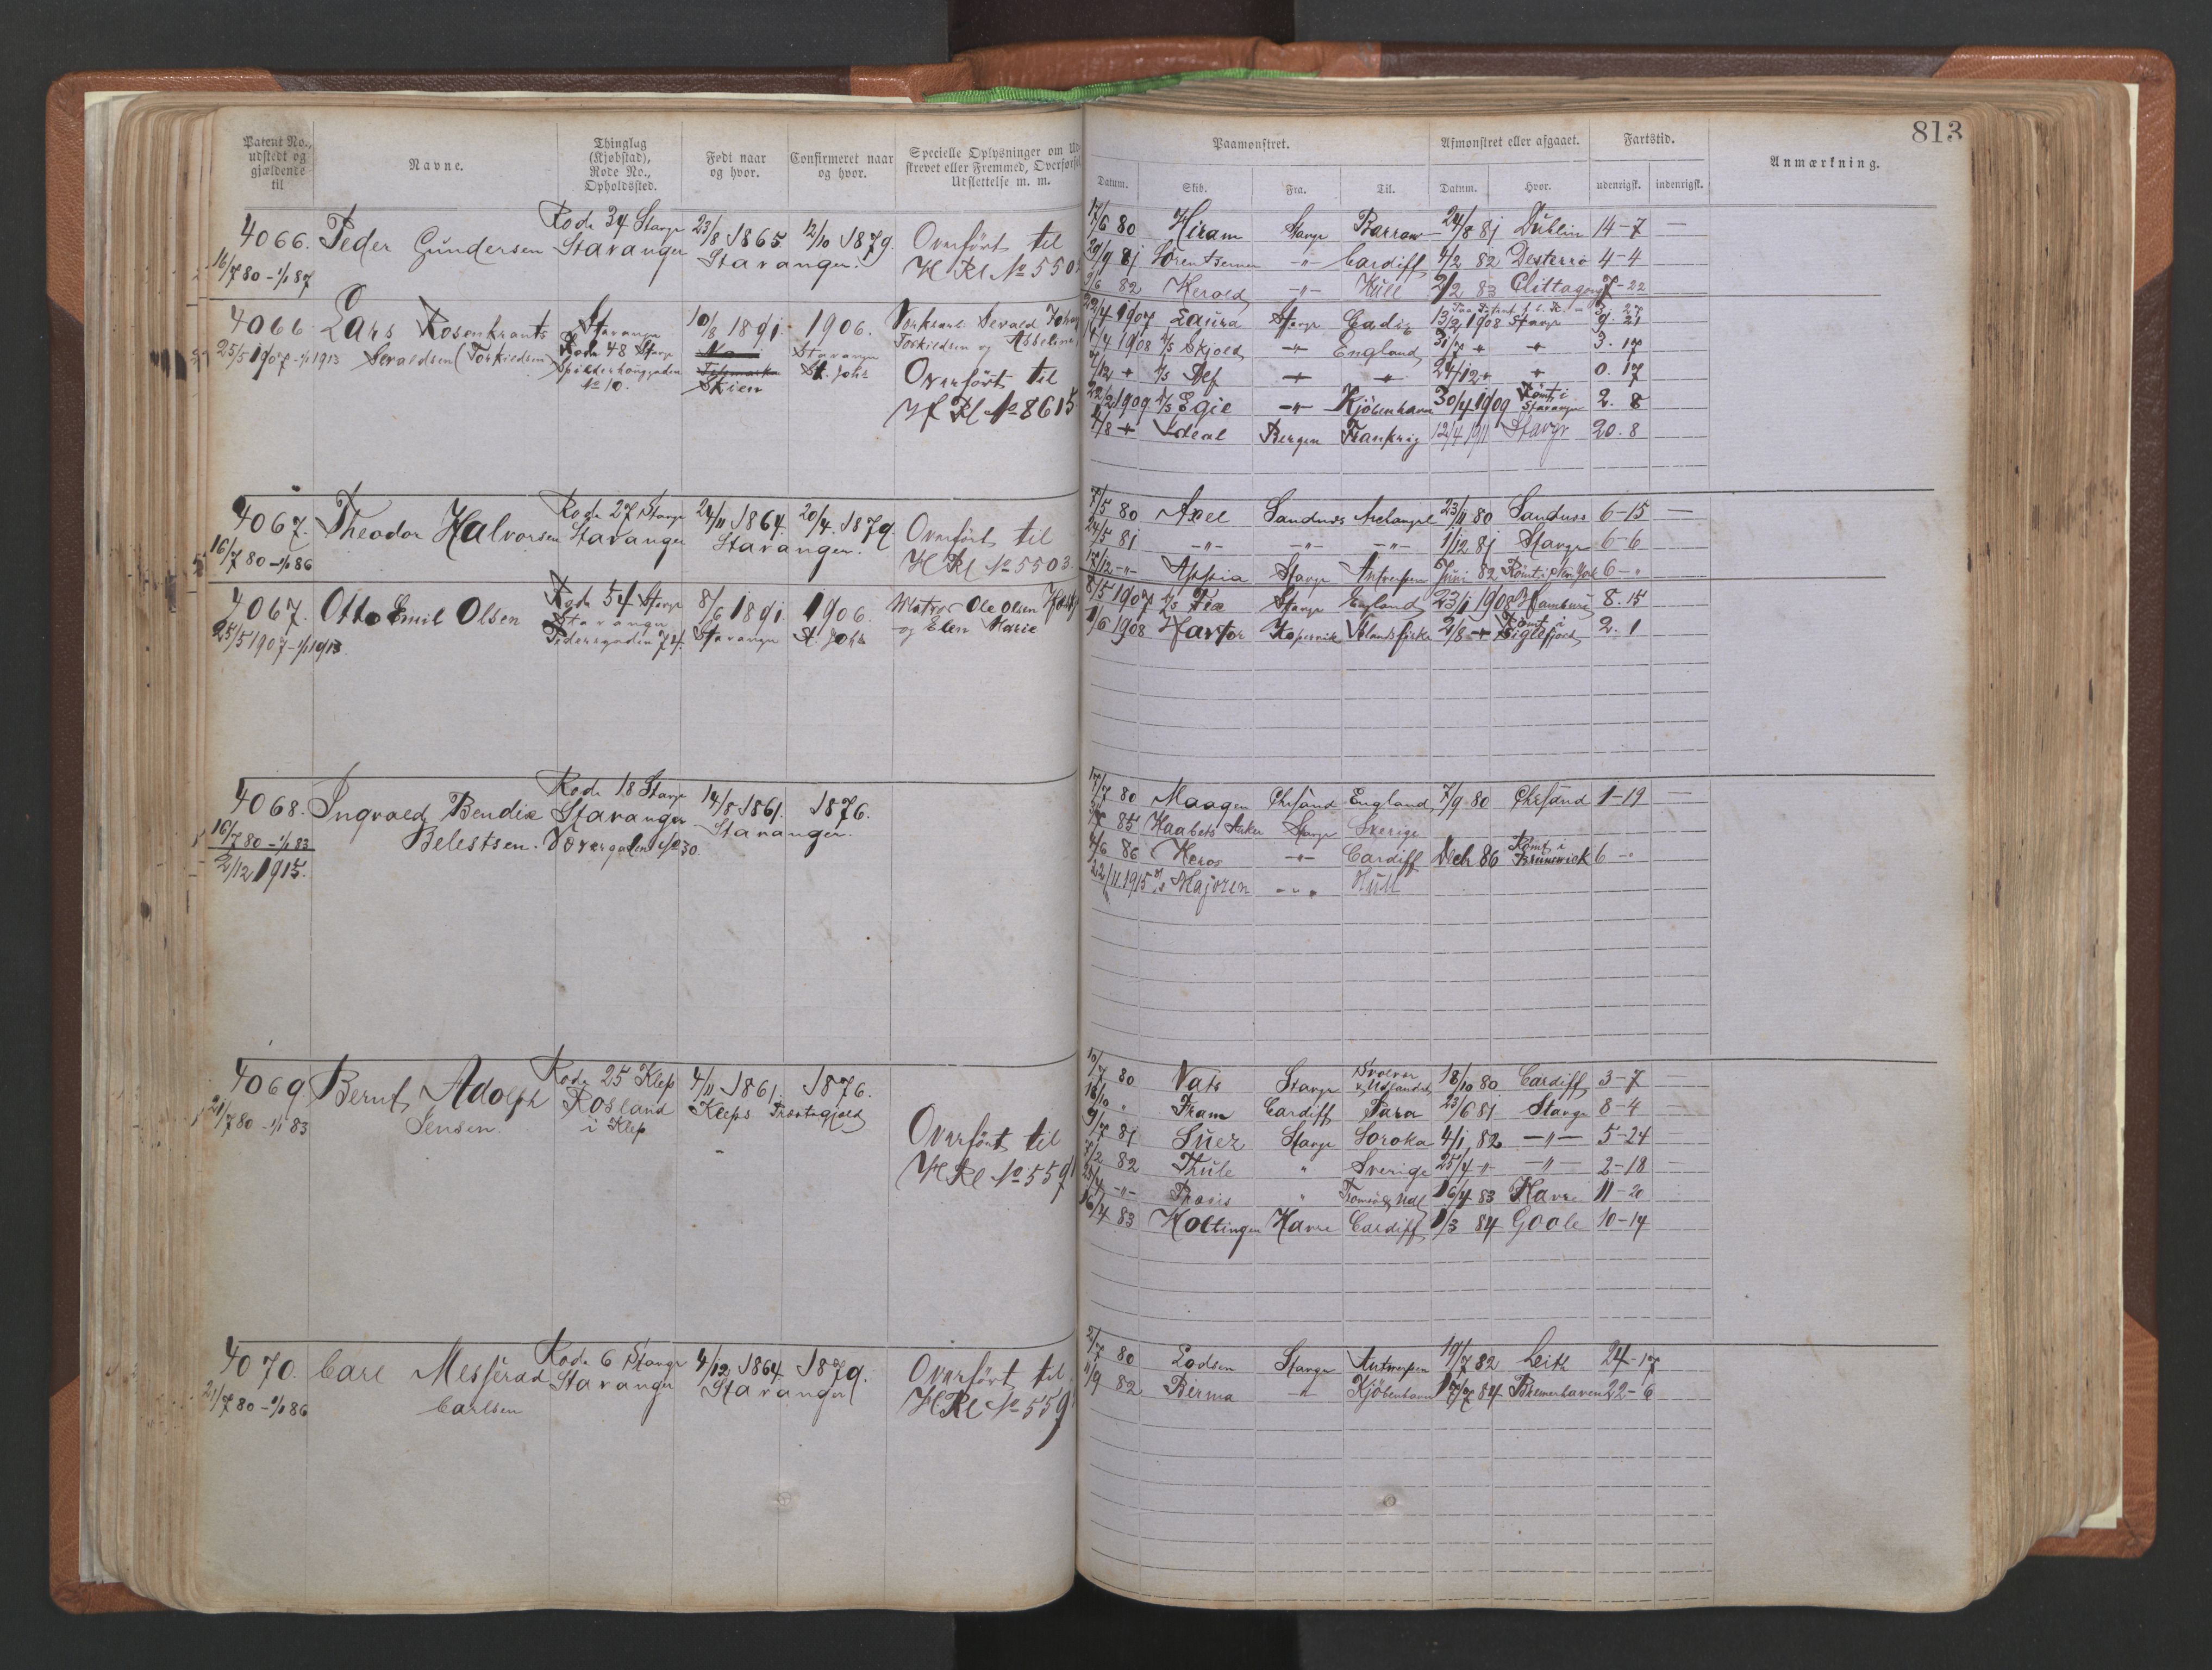 813
Patent No., udstedt og gjældende til
Navne.
Thinglag (Kjøbstad), Rode No., Opholdssted.
Født naar og hvor.
Confirmeret naar og hvor.
Specielle Oplysninger om Ud-
skrevet eller Fremmed, Overførsel,
Udslettelse m. m.
Paamønstret.
Afmønstret eller afgaaet.
Fartstid.
Anmærkning.
Datum. Skib. Fra. Til. Datum. Hvor. udenrigsk. indenrigsk.
4066. Peder Gundersen Rode 34 Stavgr Stavanger 23/8 1865. 12/10 1879. Stavanger.
16/7 80 - 1/1 87
Overført til
H Rl No 550
17/6 80 Hiram Stavgr Barrow 24/8 81 Dublin 14-7 —
29/9 81 Cardiff 4/2 82 Desterro 4-4
3/6 82 Herold -"- Hull 2/2 83 7-22
4066 Lars Rosenkrants
Sevaldsen (Torkildsen)
25/5 1907 - 1/1 1913
Stavanger
Rode 48 Stavgr
No 10.
10/8 1891. 1906.
Skien
Stavanger
St. Joh
Sevald Johan
Torkildsen og Abbeline
Overført til
H Rl No 8615
22/4 1907 Laura Stavgr Cadiz 13/2 1908 Stavgr 9. 21
1/4 1908 D/S Skjold -"- England 31/7 " " 3. 17
7/12 " D/S Alf " " 24/12 " " 0. 17
22/2 1909 D/S Egie -"- Kjöbenhavn 30/4 1909 Römt i Stavanger 2. 8
4/8 " Ideal Bergen Frankrig 12/4 1911 Stavgr 20. 8
4067. Theodor Halvorsen Rode 27 Stavgr Stavanger 24/11 1864. 20/4. 1879. Stavanger.
16/7 80 - 1/1 86
Overført til
H Rl No 5503.
7/5 80 Axel Sandnss Archangel 23/11 80 Sandnss 6-15 —
24/5 81 -"- -"- -"- 1/12 81 Stavgr 6-6
17/12 -"- Appia Stavgr Antwerpen Juni 82 Römt i New York 6-"
4067. Otto Emil Olsen Rode 54 Stavgr
Stavanger
Pedersgaden 74.
25/5 1907 - 1/1 1913.
8/6 1891. 1906.
Stavanger St Joh
Matros Ole Olsen
og Elen Marie
8/5 1907 D/S Fix Stavgr England 23/1 1908 Hamburg 8. 15
1/6 1908 Havtor Kopervik Islandsfiske 2/8 " Römt i Siglefjord 2. 1
4068. Ingvald Bendix
Belestsen.
Rode 18 Stavgr
Stavanger
Vovergaden No 30.
16/7 80 - 1/1 83
2/12 1915.
14/8 1861. 1876.
Stavanger.
17/7 80 Maagen Chrsand England 7/9 80 Chrsand 1-19 —
85 Haabets Anker Stavgr Sverige
4/6 86 Heros -"- Cardiff Dech 86 Römt i Brunswick 6-"
22/11. 1915 D/S Majoren -"- Hull
4069 Bernt Adolph
Jensen.
Rode 25 Klep
Rosland
i Klep
21/7 80 - 1/1 83
4/11 1861. 1876.
Kleps Præstegjeld
Overført til
H Rl No 559
10/7 80 Vats Stavgr Svolvær & Udlandet 18/10 80. Cardiff 3-7 —
18/10 " Fram Cardiff Para 23/6 81 Stavgr 8-4 —
9/7 81 Suez Stavgr Soroka 4/1 82 -"- 5-24 —
7/2 82 Thule " Sverige 25/4 " -"- 2-18 —
25/4 -"- Provis " Tromsö & Udl 16/4 83 Havre 11-20
16/4 83 Koltingen Havre Cardiff 1/3 84 Goole 10-14
4070. Carl Messerad
Carlsen
Rode 6 Stavgr
Stavanger
21/7 80 - 1/1 86
4/12 1864 1879.
Stavanger
Overført til
H Rl No 559
21/7 80 Lodsen Stavgr Antwerpen 19/7 82 Leith 24-17
11/9 82 Birma -"- Kjöbenhavn 17/7 84 Bremerhaven 22-6